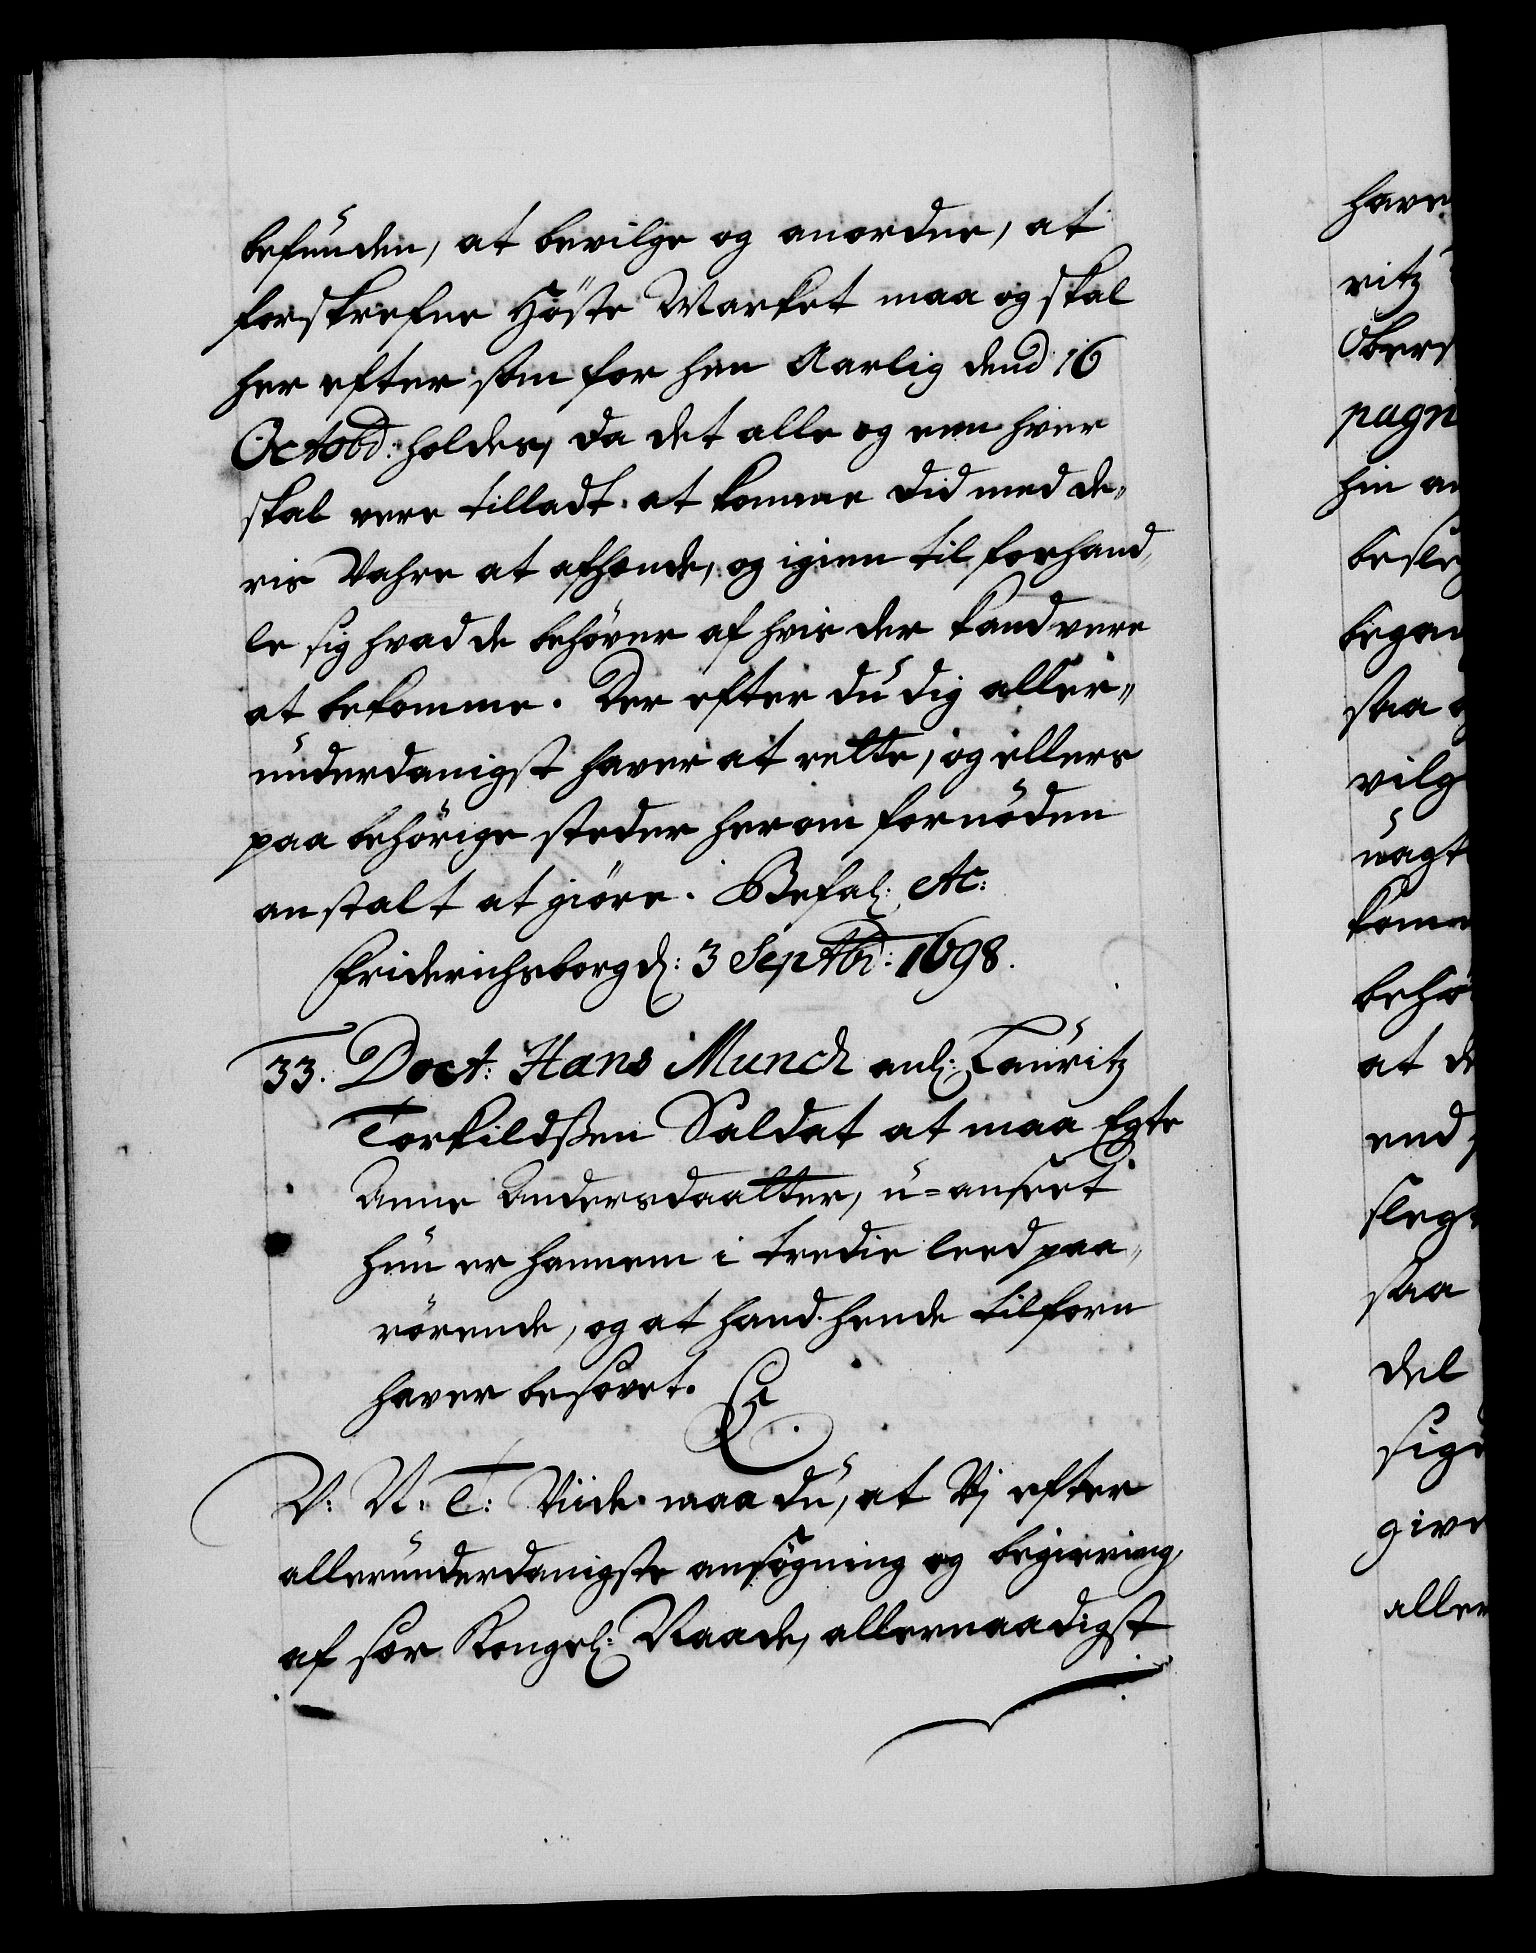 befunden, at bevilge og anordne, at
forskrefne Höste Market maa og skal
her efter som for hen Aarlig dend 16
Octobd: holdes, da det alle og een hver
skal vere tilladt at komme did med de„
ris Vahre at afhænde, og igien til forhand„
le sig hvad de behöver af hvis der kand vere
at bekomme. Der efter du dig aller„
underdanigst haver at rette, og ellers
paa behörige steder herom fornöden
anstalt at giöre. Befal: etc:
Friderichsborg d: 3 Septbr: 1698.
33. Doct: Hans Munch anl: Lauritz
Torkildssen Saldat at maa Egte
Anne Andersdaatter, u=anseet
hun er hannem i tredie leed paa„
rörende, og at hand hende tilforn
haver besovet.
V: N: T: Viide maa du, at Vj efter
allerunderdanigste ansögning og begiering,
af sær Kongel: Naade, allernaadigst
have
ritz
Obers
pagn
hin an
besleg
began
saa
vilg
uagt
komm
behö
at de
end
sleg
saa
del
sige
give
aller